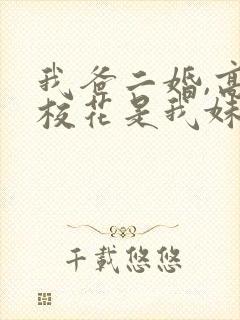 我爸二婚,高
校花是我妹
千载悠悠